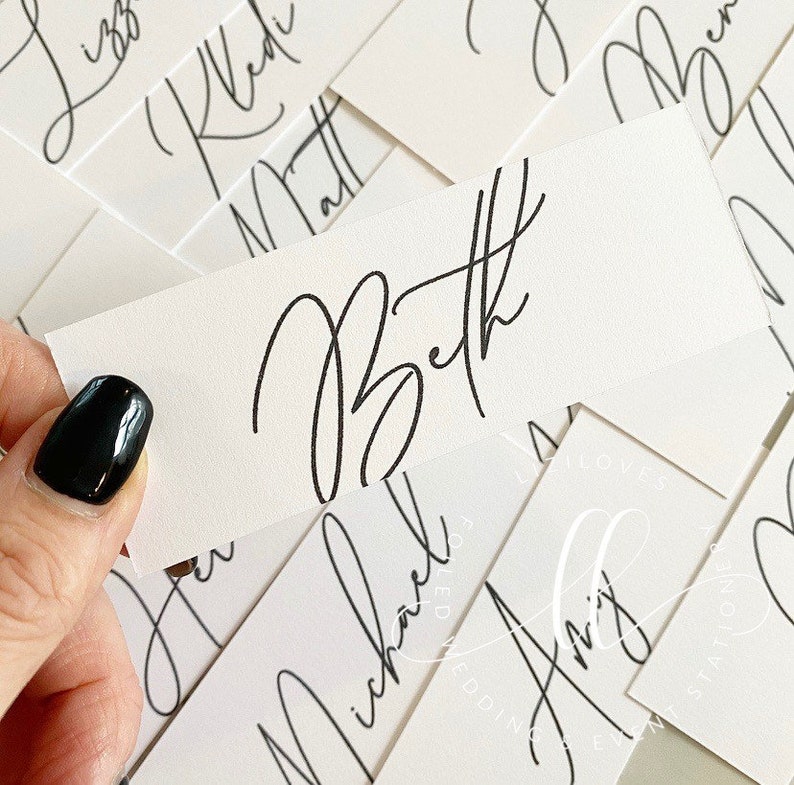 Lizz
Kledi
Ben
Matt
Beth
Michael
Amy
LIZILOVES
FOILED WEDDING & EVENT STATIONERY